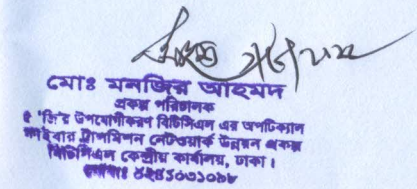 মোঃ মনজির আহমদ
প্রকল্প পরিচালক
৫ 'জি'র উপযোগীকরণ বিটিসিএল এর অপটিক্যাল
ফাইবার ট্রান্সমিশন নেটওয়ার্ক উন্নয়ন প্রকল্প
বিটিসিএল কেন্দ্রীয় কার্যালয়, ঢাকা।